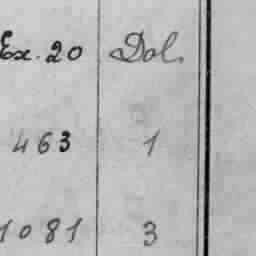 Ex. 20 Dol.
463 1
1081 3